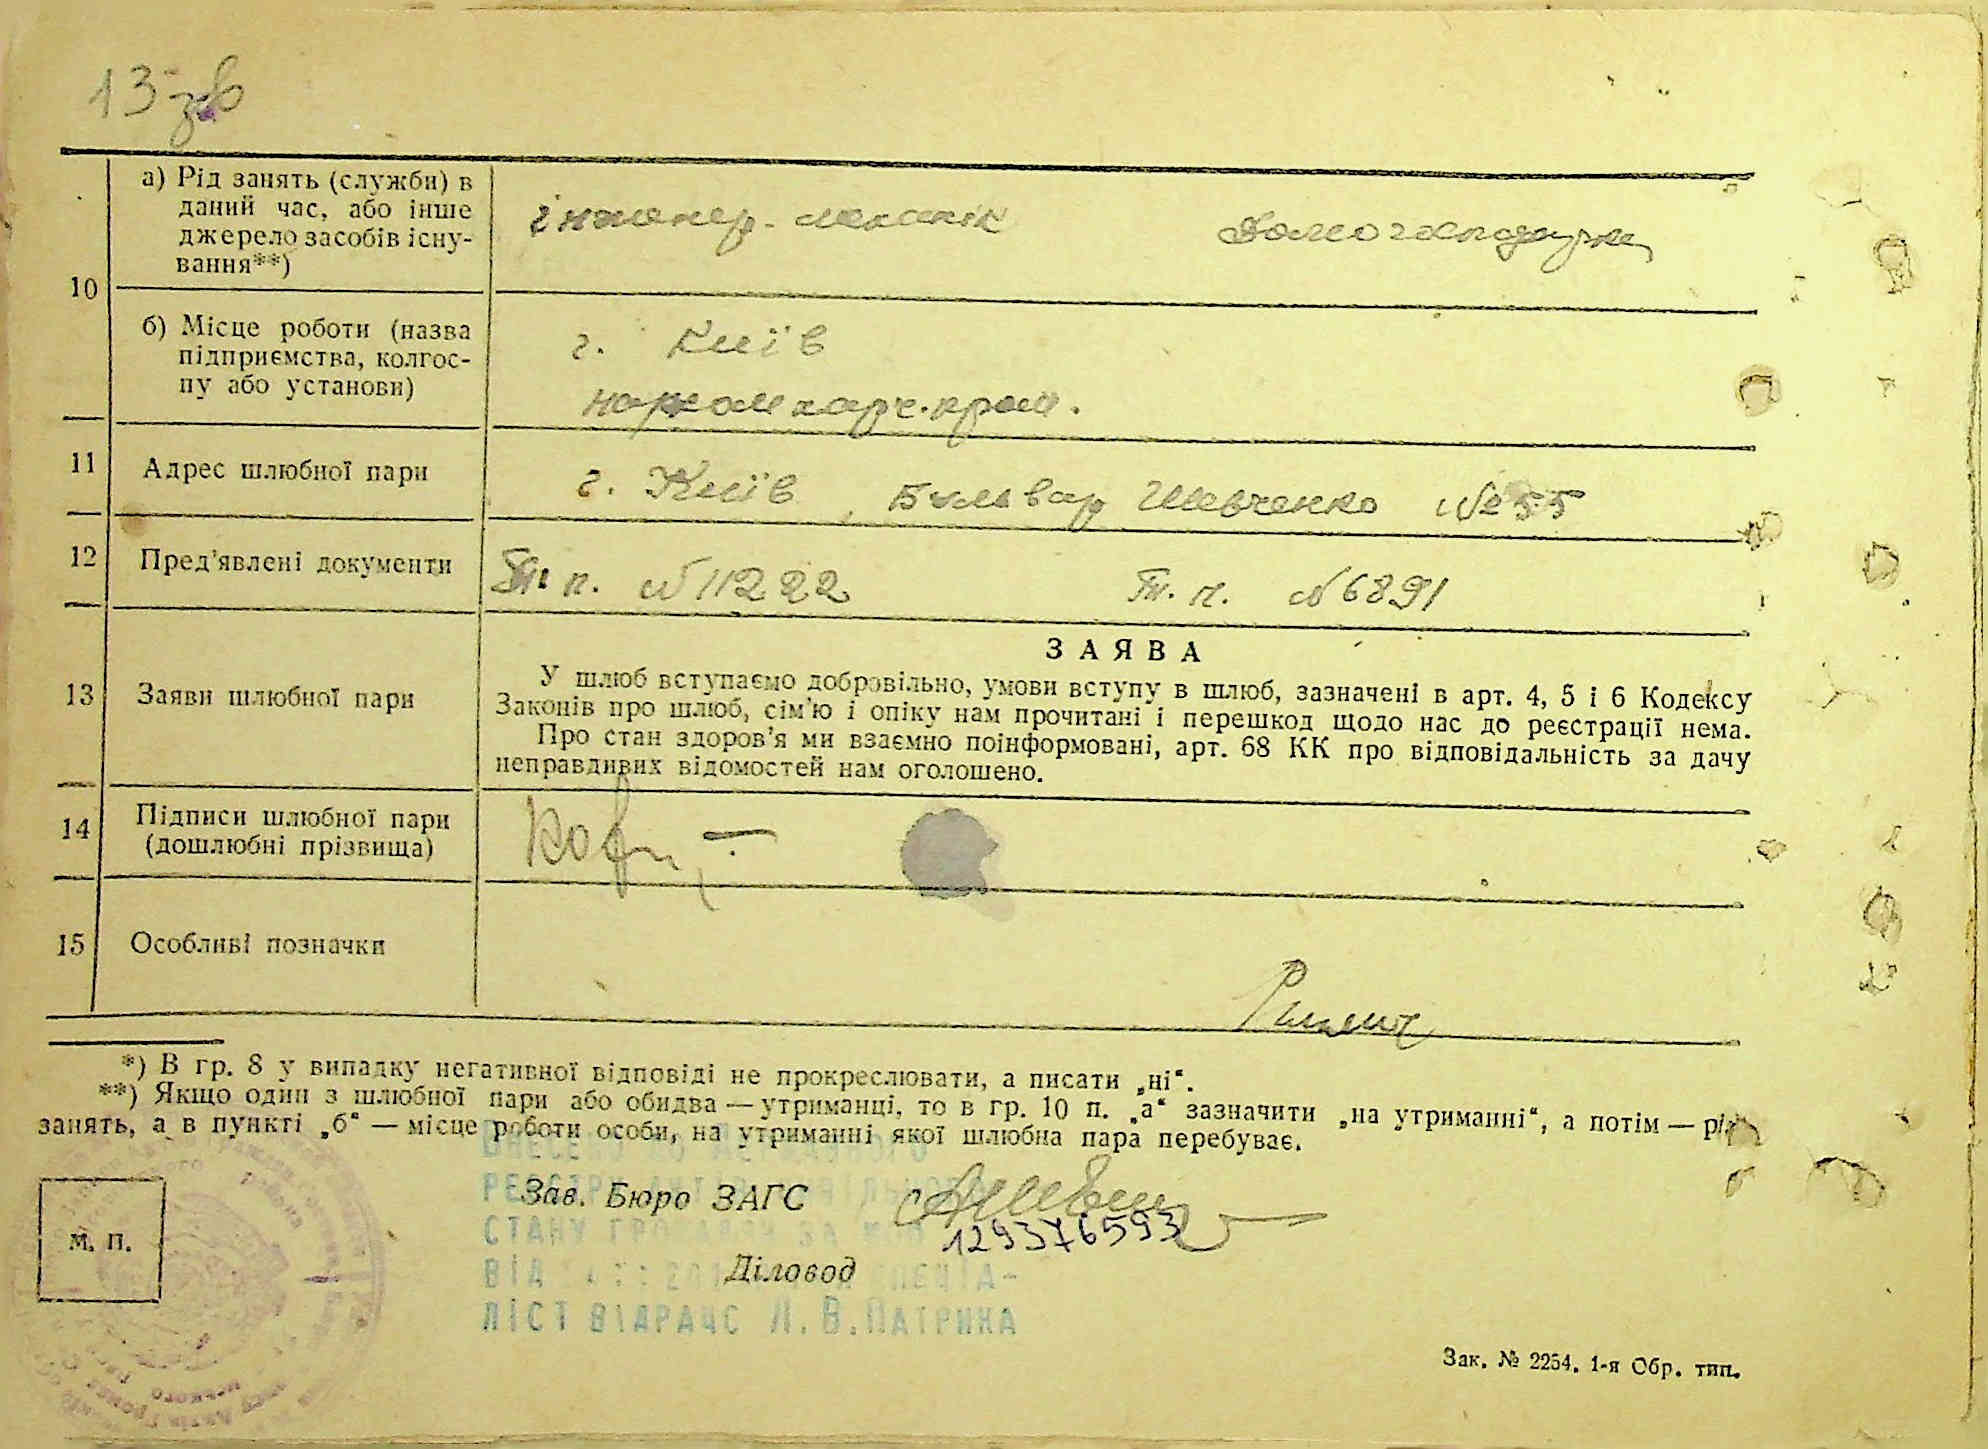 13
10
а) Рід занять (служби) в
даний час, або інше
джерело засобів існу-
вання**)
інженер-механік
Домогосподарка
б) Місце роботи (назва
підприємства, колгос-
пу або установи)
г. Київ
наркомхарч.пром.
11
Адрес шлюбної пари
г. Київ, Бульвар Шевченко №55
12
Пред'явлені документи
п. №11222
п. №6891
13
Заяви шлюбної пари
ЗАЯВА
У шлюб вступаємо добровільно, умови вступу в шлюб, зазначені в арт. 4, 5 і 6 Кодексу
Законів про шлюб, сім'ю і опіку нам прочитані і перешкод щодо нас до реєстрації нема.
Про стан здоров'я ми взаємно поінформовані, арт. 68 КК про відповідальність за дачу
неправдивих відомостей нам оголошено.
14
Підписи шлюбної пари
(дошлюбні прізвища)
15
Особливі позначки
*) В гр. 8 у випадку негативної відповіді не прокреслювати, а писати „ні“.
**) Якщо один з шлюбної пари або обидва — утриманці, то в гр. 10 п. „а“ зазначити „на утриманні“, а потім — рід
занять, а в пункті „б“ — місце роботи особи, на утриманні якої шлюбна пара перебуває.
ВНЕСЕНО ДО ДЕРЖАВНОГО
РЕЄСТРУ АКТІВ ЦИВІЛЬНОГО
Зав. Бюро ЗАГС
СТАНУ ГРОМАДЯН ЗА №
1293376593
ВІД СПЕЦІА-
Діловод
ЛІСТ ВІДРАЦС Л.В.ПАТРИНА
М. П.
Зак. № 2254. 1-я Обр. тип.